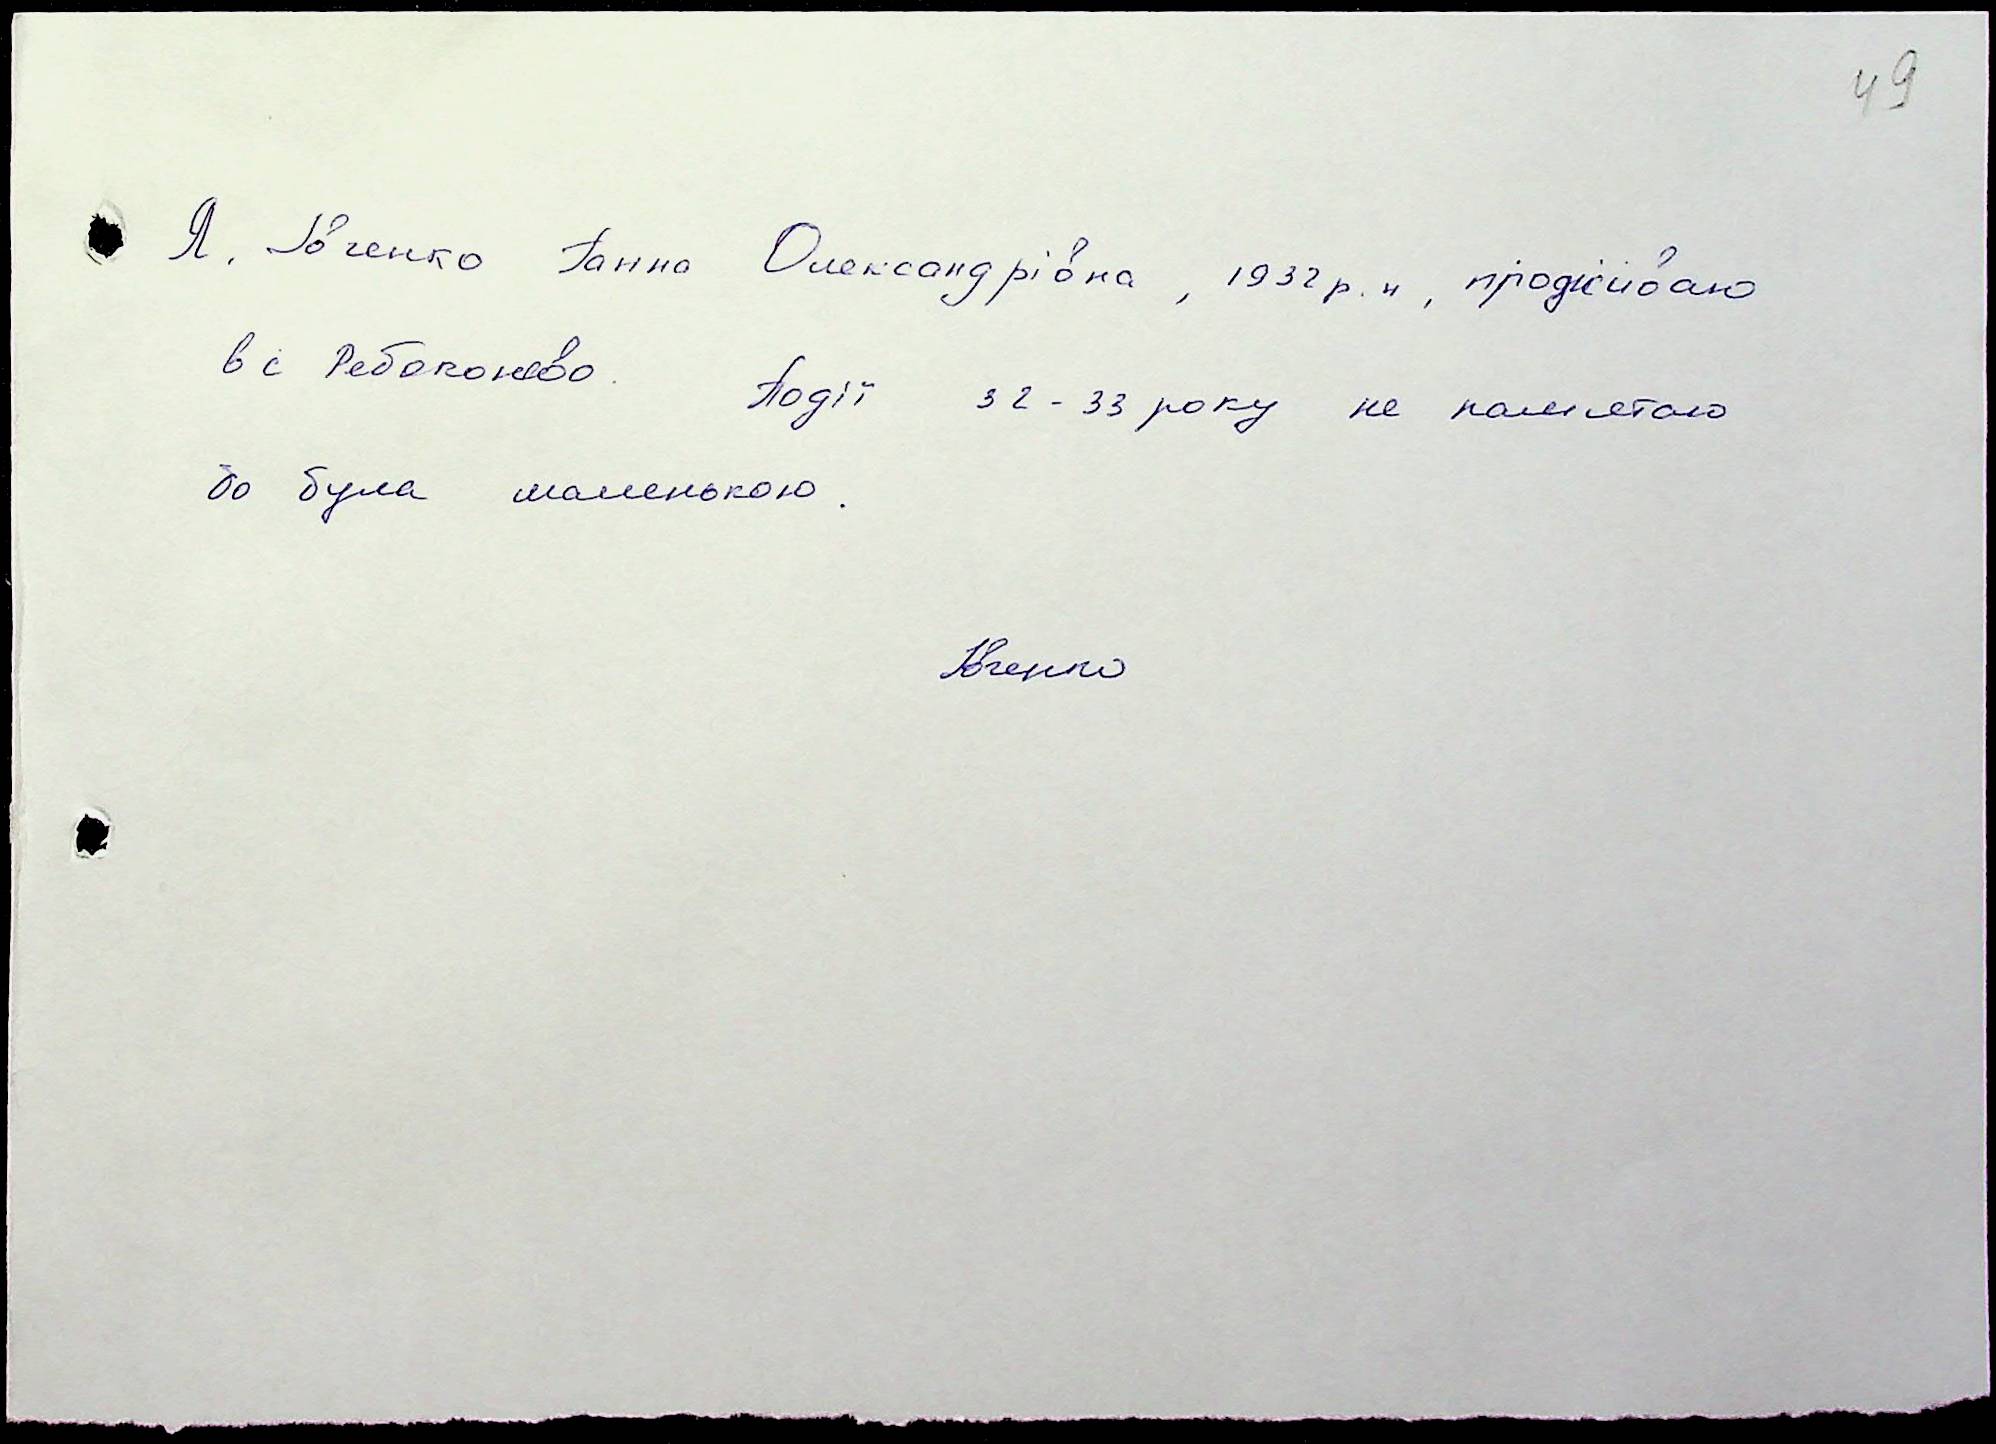 49
Я, Івченко Ганна Олександрівна, 1932 р.н, проживаю
в с Ребоконево. Події 32-33 року не памятаю
бо була маленькою.
Івченко